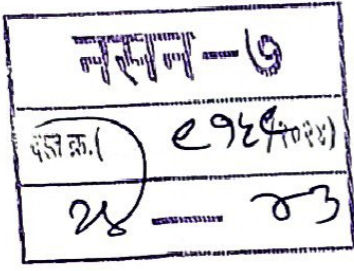 नसन-७
दस्त क्र.( ९१६५/२०२४)
२४ — ४३